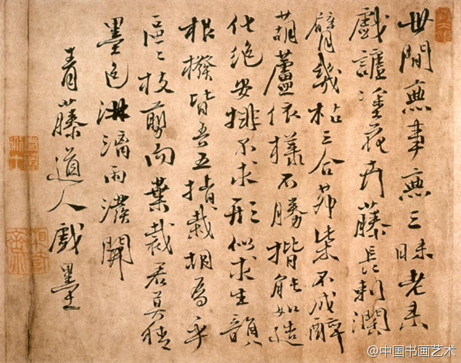 世間無事無三昧老來
戲謔塗花卉藤長刺濶
臂幾枯三合茅柴不成醉
葫蘆依樣不勝揩能如造
化絕安排不求形似求生韻
根撥皆吾五指栽胡為乎
區區枝剪而葉裁君莫猜
墨色淋漓雨潑開
青藤道人戲墨
@中国书画艺术